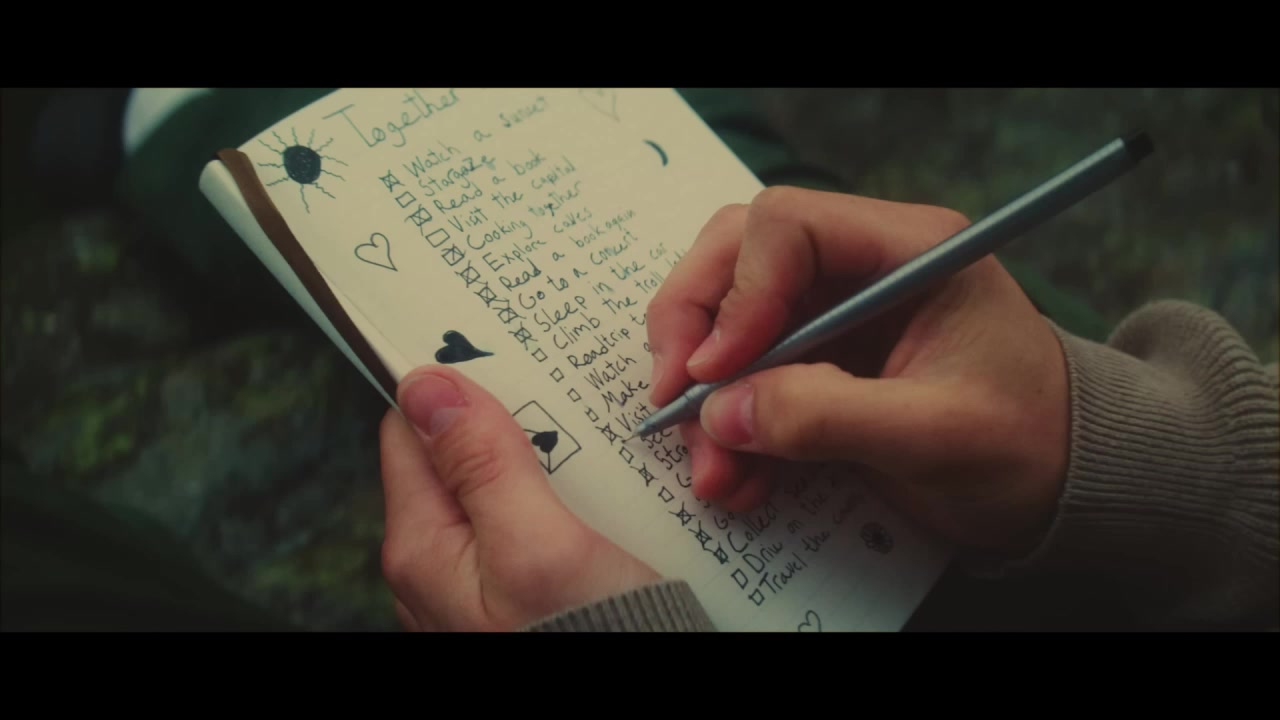 Together
Watch a sunset
Stargaze
Read a book
Visit the capital
Cooking together
Explore caves
Read a book again
Go to a concert
Sleep in the car
Climb the troll
Roadtrip
Watch a
Make
Visit
See
Collect
Drive on the
Travel the